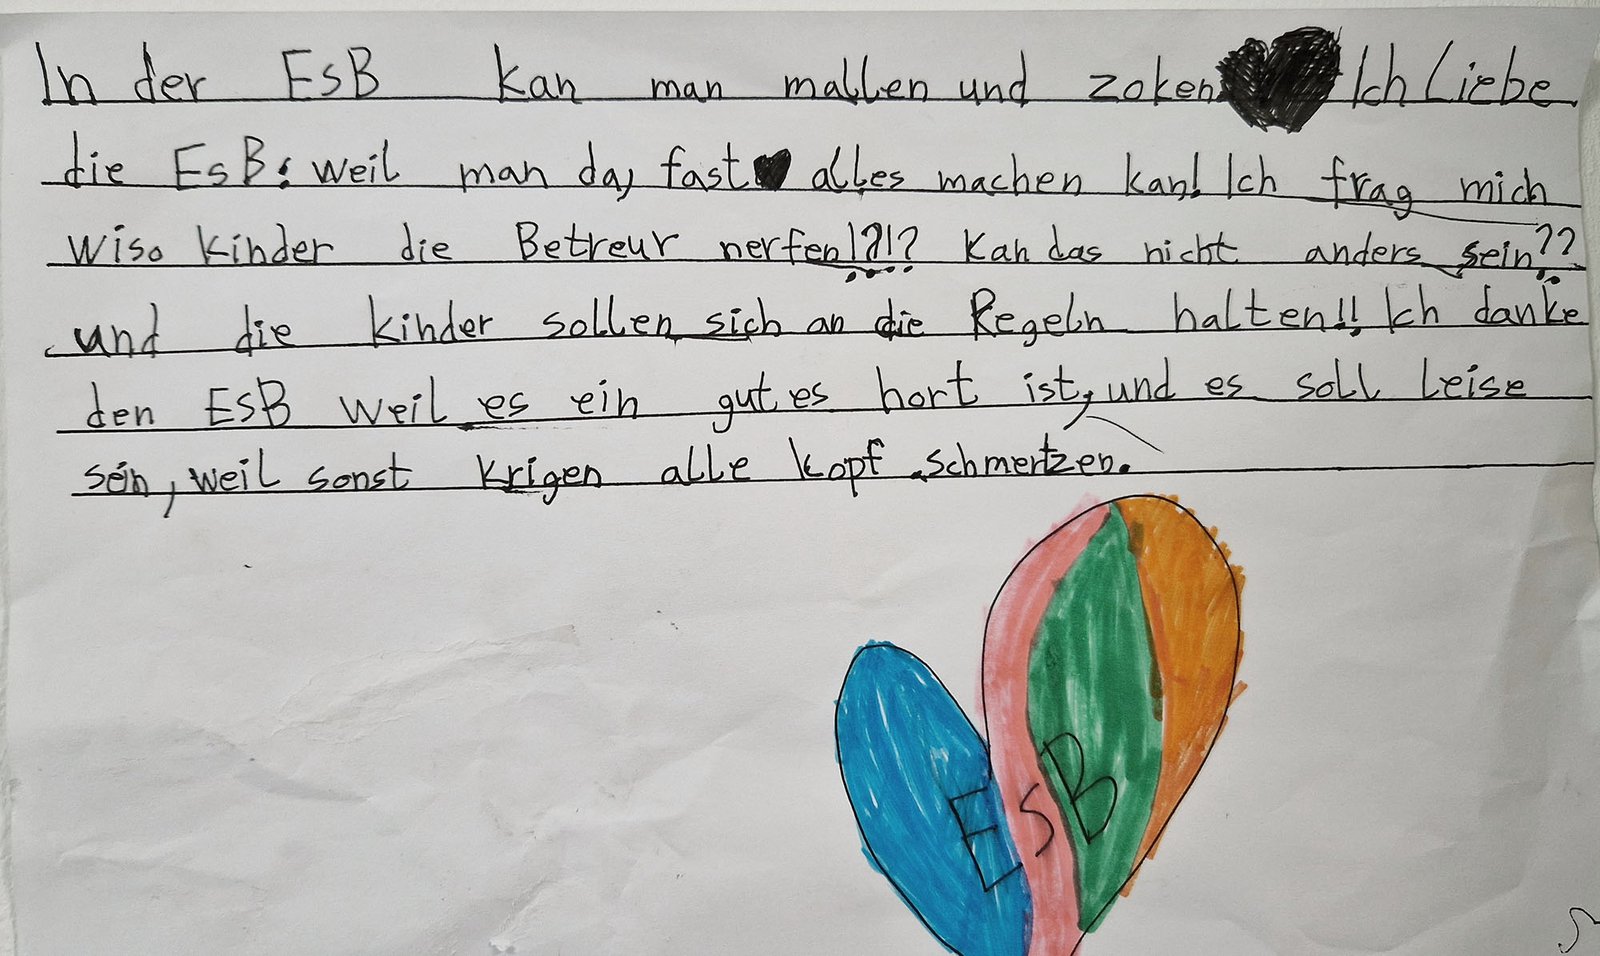 In der EsB kan man mallen und zoken Ich Liebe
die EsB: weil man da, fast alles machen kan! Ich frag mich
wiso kinder die Betreur nerfen!?!? kan das nicht anders sein??
und die kinder sollen sich an die Regeln halten!! Ich danke
den EsB weil es ein gutes hort ist, und es soll leise
sein, weil sonst krigen alle kopf schmertzen.
EsB